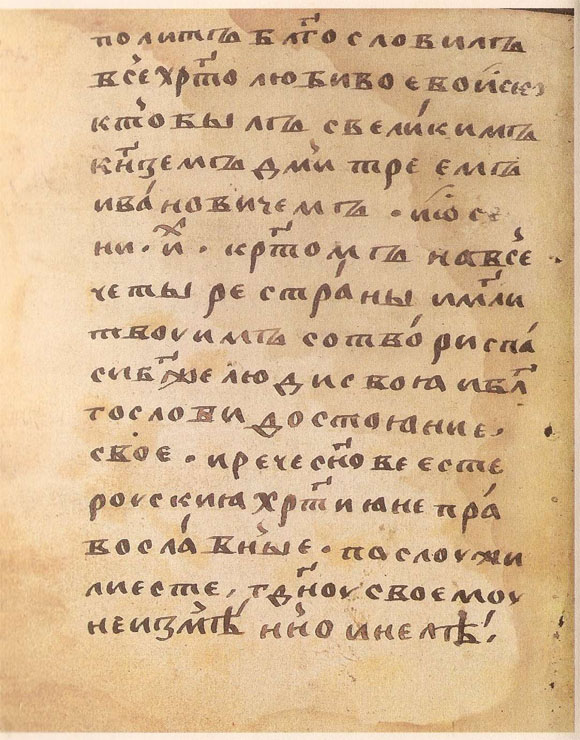 политъ бл҃гословилъ
все хрⷭ҇толюбивое войскѡ
кто былъ с великимъ
кн҃ѕемъ дмитреемъ
ивановичемъ · и ѡсе
ни · и҃ · крⷭ҇томъ на все
четыре страны и мл҃и
твоу имъ сотвори спа
си бж҃е люди своѧ и бл҃
гослови достоѧние
свое · и рече сн҃ове есте
роусскиѧ хрⷭ҇тиѧне пра
вославные · паслоужи
ли есте, гдⷭ҇ноу своемоу
неизмѣнно и нелѣ